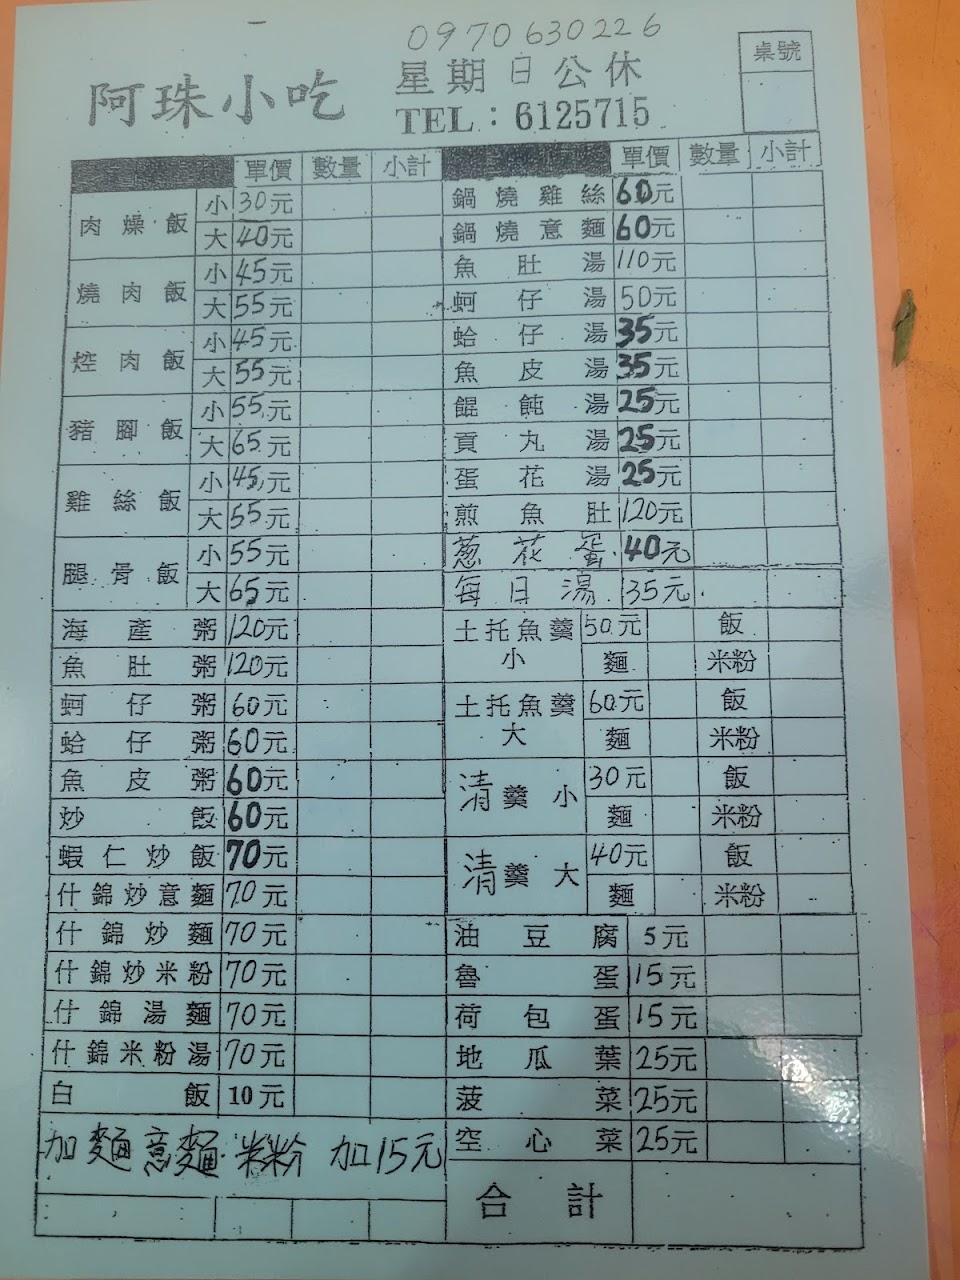 0970630226
阿珠小吃
星期日公休
TEL：6125715
桌號
單價 數量 小計
肉燥飯 小 30元
大 40元
燒肉飯 小 45元
大 55元
焢肉飯 小 45元
大 55元
豬腳飯 小 55元
大 65元
雞絲飯 小 45元
大 55元
腿骨飯 小 55元
大 65元
海產粥 120元
魚肚粥 120元
蚵仔粥 60元
蛤仔粥 60元
魚皮粥 60元
炒飯 60元
蝦仁炒飯 70元
什錦炒意麵 70元
什錦炒麵 70元
什錦炒米粉 70元
什錦湯麵 70元
什錦米粉湯 70元
白飯 10元
加麵意麵米粉 加15元
單價 數量 小計
鍋燒雞絲 60元
鍋燒意麵 60元
魚肚湯 110元
蚵仔湯 50元
蛤仔湯 35元
魚皮湯 35元
餛飩湯 25元
貢丸湯 25元
蛋花湯 25元
煎魚肚 120元
蔥花蛋 40元
每日湯 35元
土托魚羹 50元 飯
小 麵 米粉
土托魚羹 60元 飯
大 麵 米粉
清羹小 30元 飯
麵 米粉
清羹大 40元 飯
麵 米粉
油豆腐 5元
魯蛋 15元
荷包蛋 15元
地瓜葉 25元
菠菜 25元
空心菜 25元
合計